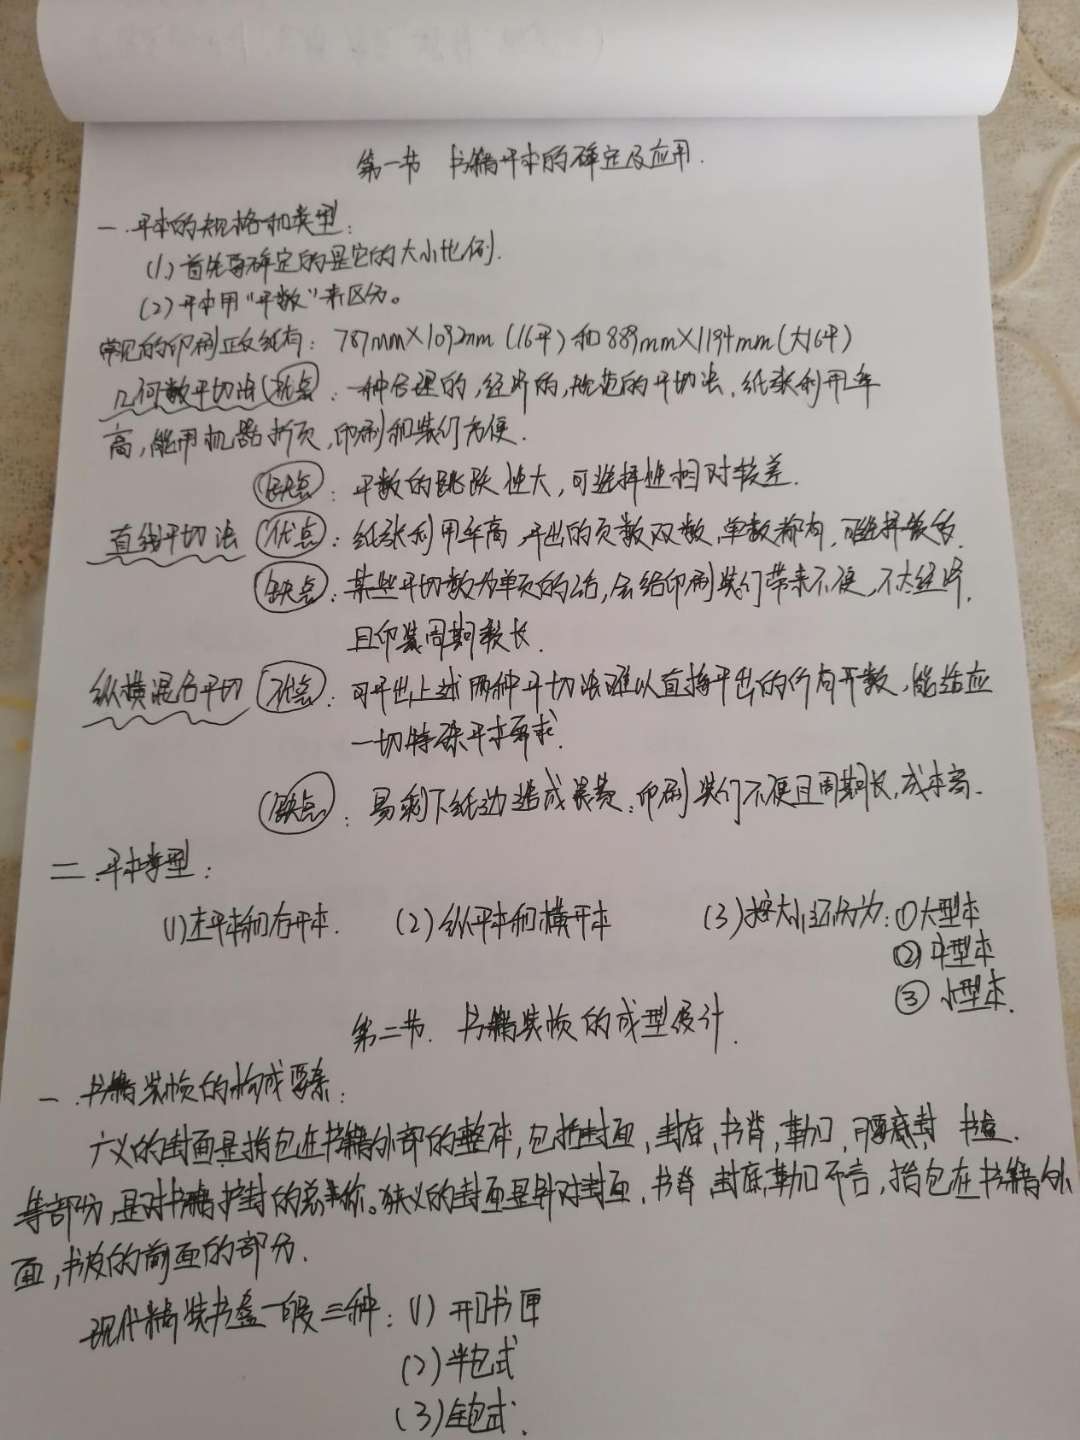 第一节 书籍开本的确定及应用.
一.开本的规格和类型:
(1)首先要确定的是它的大小比例.
(2)开本用“开数”来区分。
常见的印刷正文纸有: 787mm×1092mm (16开)和889mm×1194mm(大16开)
几何数开切法(优点: 一种合理的,经济的,规范的开切法,纸张利用率
高,能用机器折页,印刷和装订方便.
缺点: 开数的跳跃性大,可选择性相对较差.
直线开切法 优点: 纸张利用率高,开出的页数双数,单数都有,可选择较多.
缺点: 某些开切数为单页的话,会给印刷装订带来不便,不太经济,
且印装周期较长.
纵横混合开切 优点: 可开出上述两种开切法难以直接开出的所有开数,能适应
一切特殊开本要求.
缺点: 易剩下纸边造成浪费,印刷装订不便且周期长,成本高.
二.开本类型:
(1)左开本和右开本. (2)纵开本和横开本 (3)按大小还分为:①大型本
②中型本
③小型本.
第二节. 书籍装帧的成型设计.
一.书籍装帧的构成要素:
广义的封面是指包在书籍外部的整体,包括封面,封底,书脊,勒口,腰封 书盒.
等部分,是对书籍护封的总称。狭义的封面是针对封面,书脊,封底,勒口而言,指包在书籍外
面,书皮的前面的部分.
现代精装书盒一般三种: (1) 开口书匣
(2)半包式
(3)全包式.